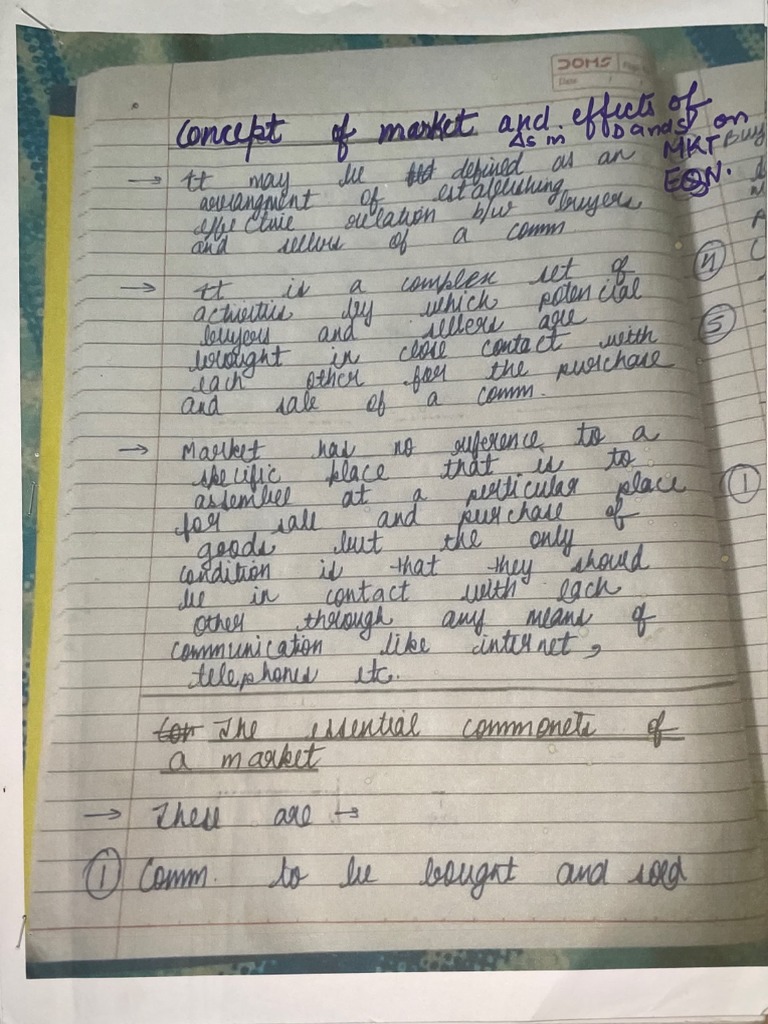 DOMS
Date
Concept of market and effects of
As in D and S on
MKT
EQN.
→ It may be defined as an
arrangment of establishing
effective relation b/w buyers
and sellers of a comm
→ It is a complex set of
activities by which potencial
buyers and sellers are
brought in close contact with
each other for the purchase
and sale of a comm.
→ Market has no reference to a
specific place that is to
assemble at a perticular place
for sale and purchase of
goods but the only
condition is that they should
be in contact with each
other through any means of
communication like internet,
telephones etc.
The essential commonets of
a market
→ These are ↦
① Comm. to be bought and sold
Buy
④
⑤
①